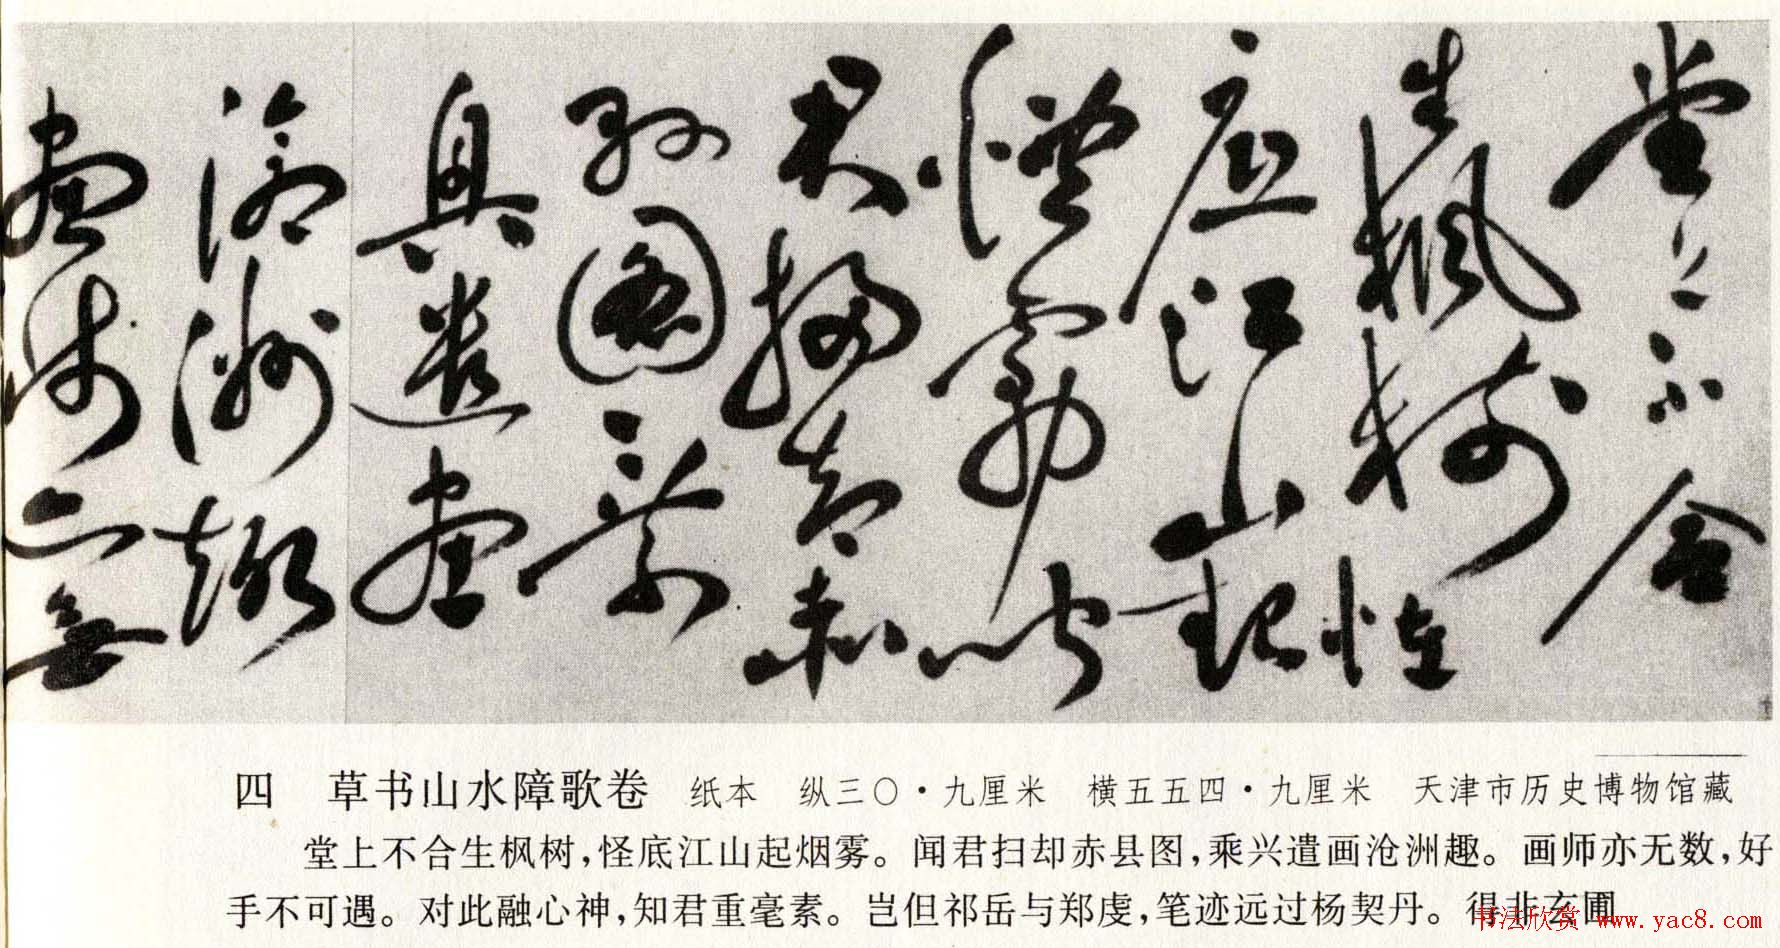 堂上不合
生楓樹怪
底江山起
煙霧聞
君掃却赤
縣圖乘
興遣畫
滄洲趣
畫師亦無
四 草书山水障歌卷 纸本 纵三〇·九厘米 横五五四·九厘米 天津市历史博物馆藏
堂上不合生枫树,怪底江山起烟雾。闻君扫却赤县图,乘兴遣画沧洲趣。画师亦无数,好
手不可遇。对此融心神,知君重毫素。岂但祁岳与郑虔,笔迹远过杨契丹。得非玄圃
书法欣赏 www.yac8.com